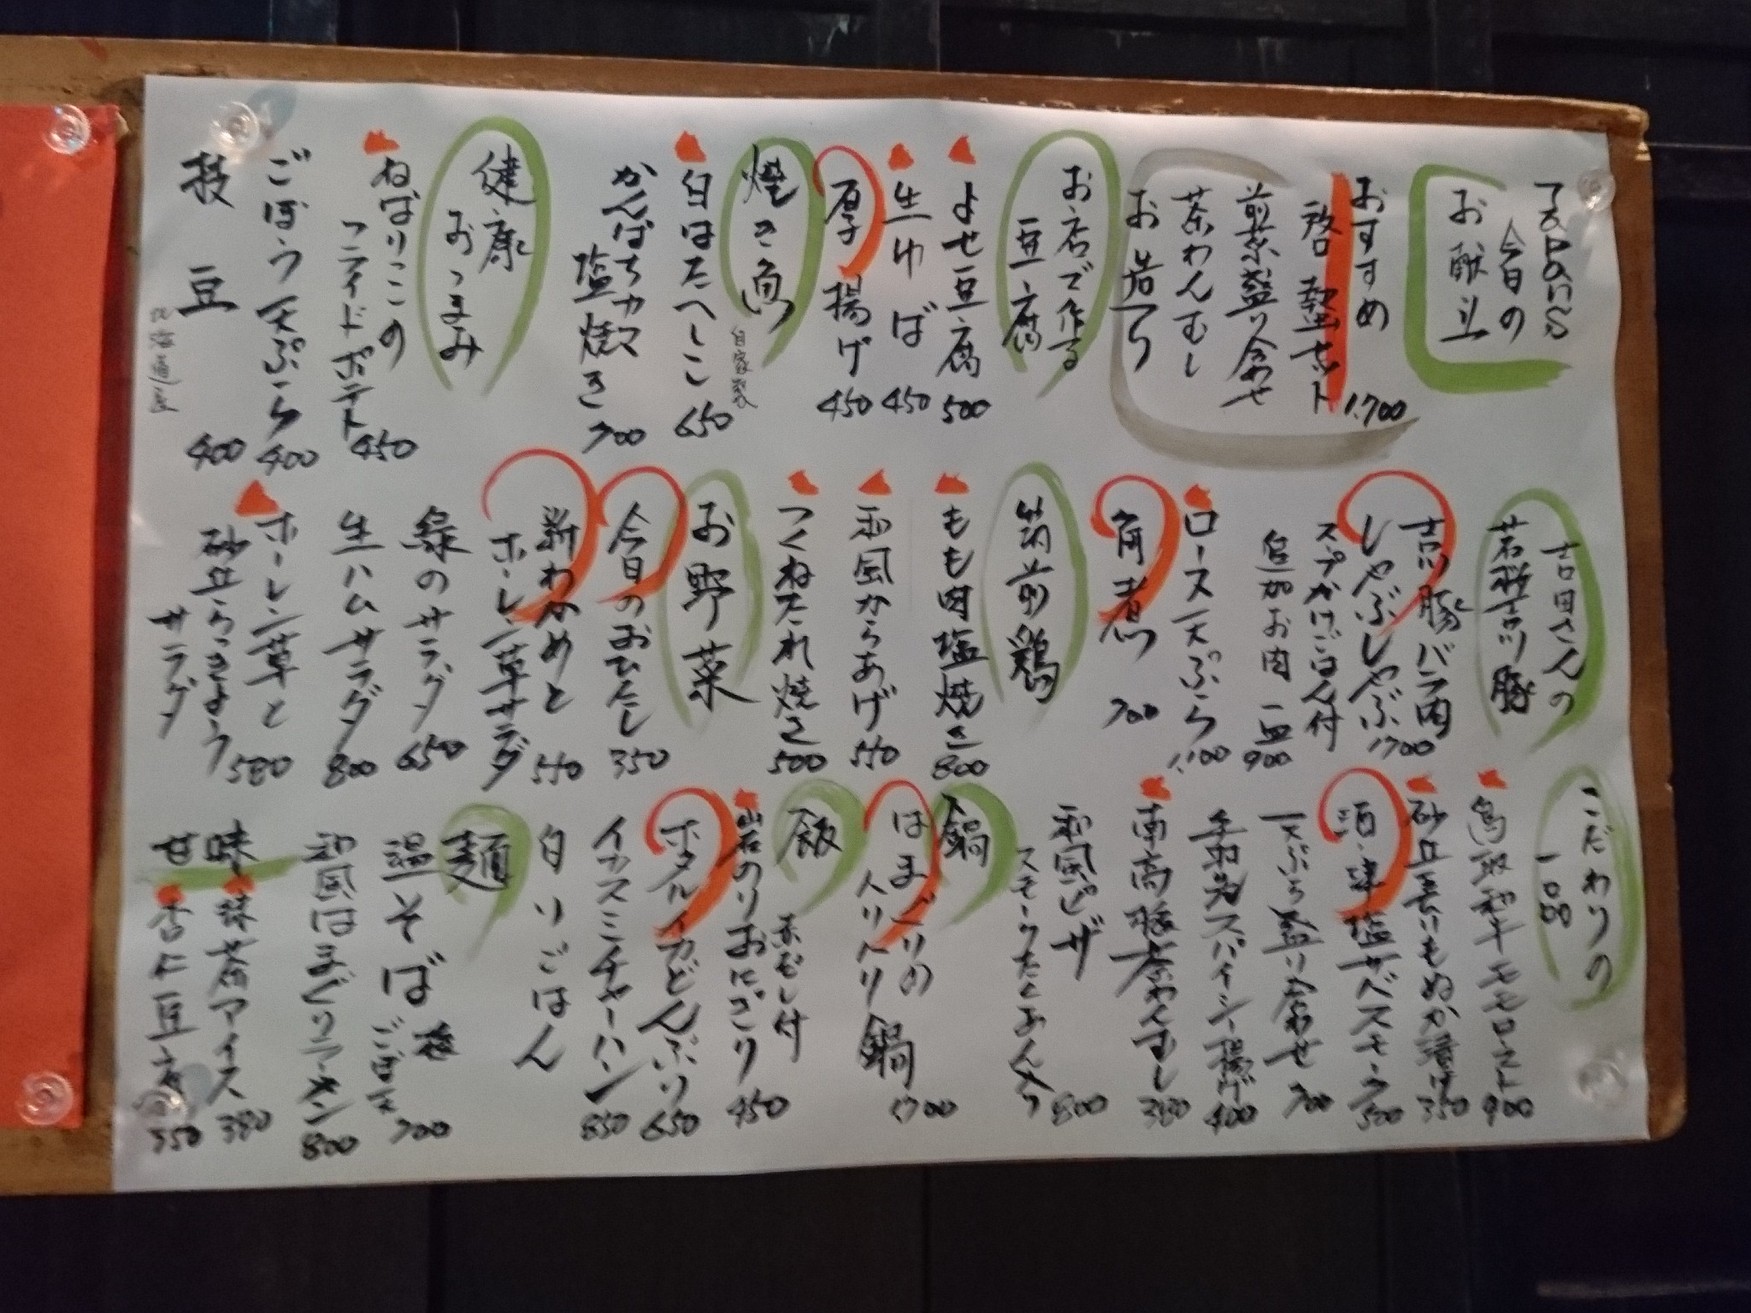 今日の
お献立
おすすめ
1.700
煎茶盛り合わせ
茶わんむし
お造り
お店で作る
豆腐
よせ豆腐
500
生ゆば
450
厚揚げ
450
焼き魚
自家製
白はたへしこ
650
かんぱちカマ
塩焼き
700
健康
おつまみ
ねばりこの
フライドポテト
450
ごぼう天ぷら
400
枝豆
北海道産
400
吉田さんの
若桜吉川豚
吉川豚バラ肉
しゃぶしゃぶ
1700
スープかけごはん付
追加お肉 一皿
900
ロース天ぷら
1,100
角煮
700
筑前鶏
もも肉塩焼き
800
和風からあげ
550
つくねたれ焼き
500
お野菜
今日のおひたし
350
新わかめと
ホーレン草サラダ
550
緑のサラダ
650
生ハムサラダ
800
ホーレン草と
砂丘らっきょう
サラダ
580
こだわりの
一品
鳥取和牛モモロースト
900
砂丘長いもぬか漬け
350
酒津塩サバスモーク
500
天ぷら盛り合わせ
700
手羽先スパイシー揚げ
400
南高梅茶わんむし
380
和風ピザ
スモークたくあん入り
800
鍋
はまぐりの
鍋
1700
飯
岩のりおにぎり
赤だし付
450
ホタルイカどんぶり
650
イカスミチャーハン
850
白いごはん
麺
温そば
700
和風はまぐりラーメン
800
甘味
抹茶アイス
380
杏仁豆腐
350